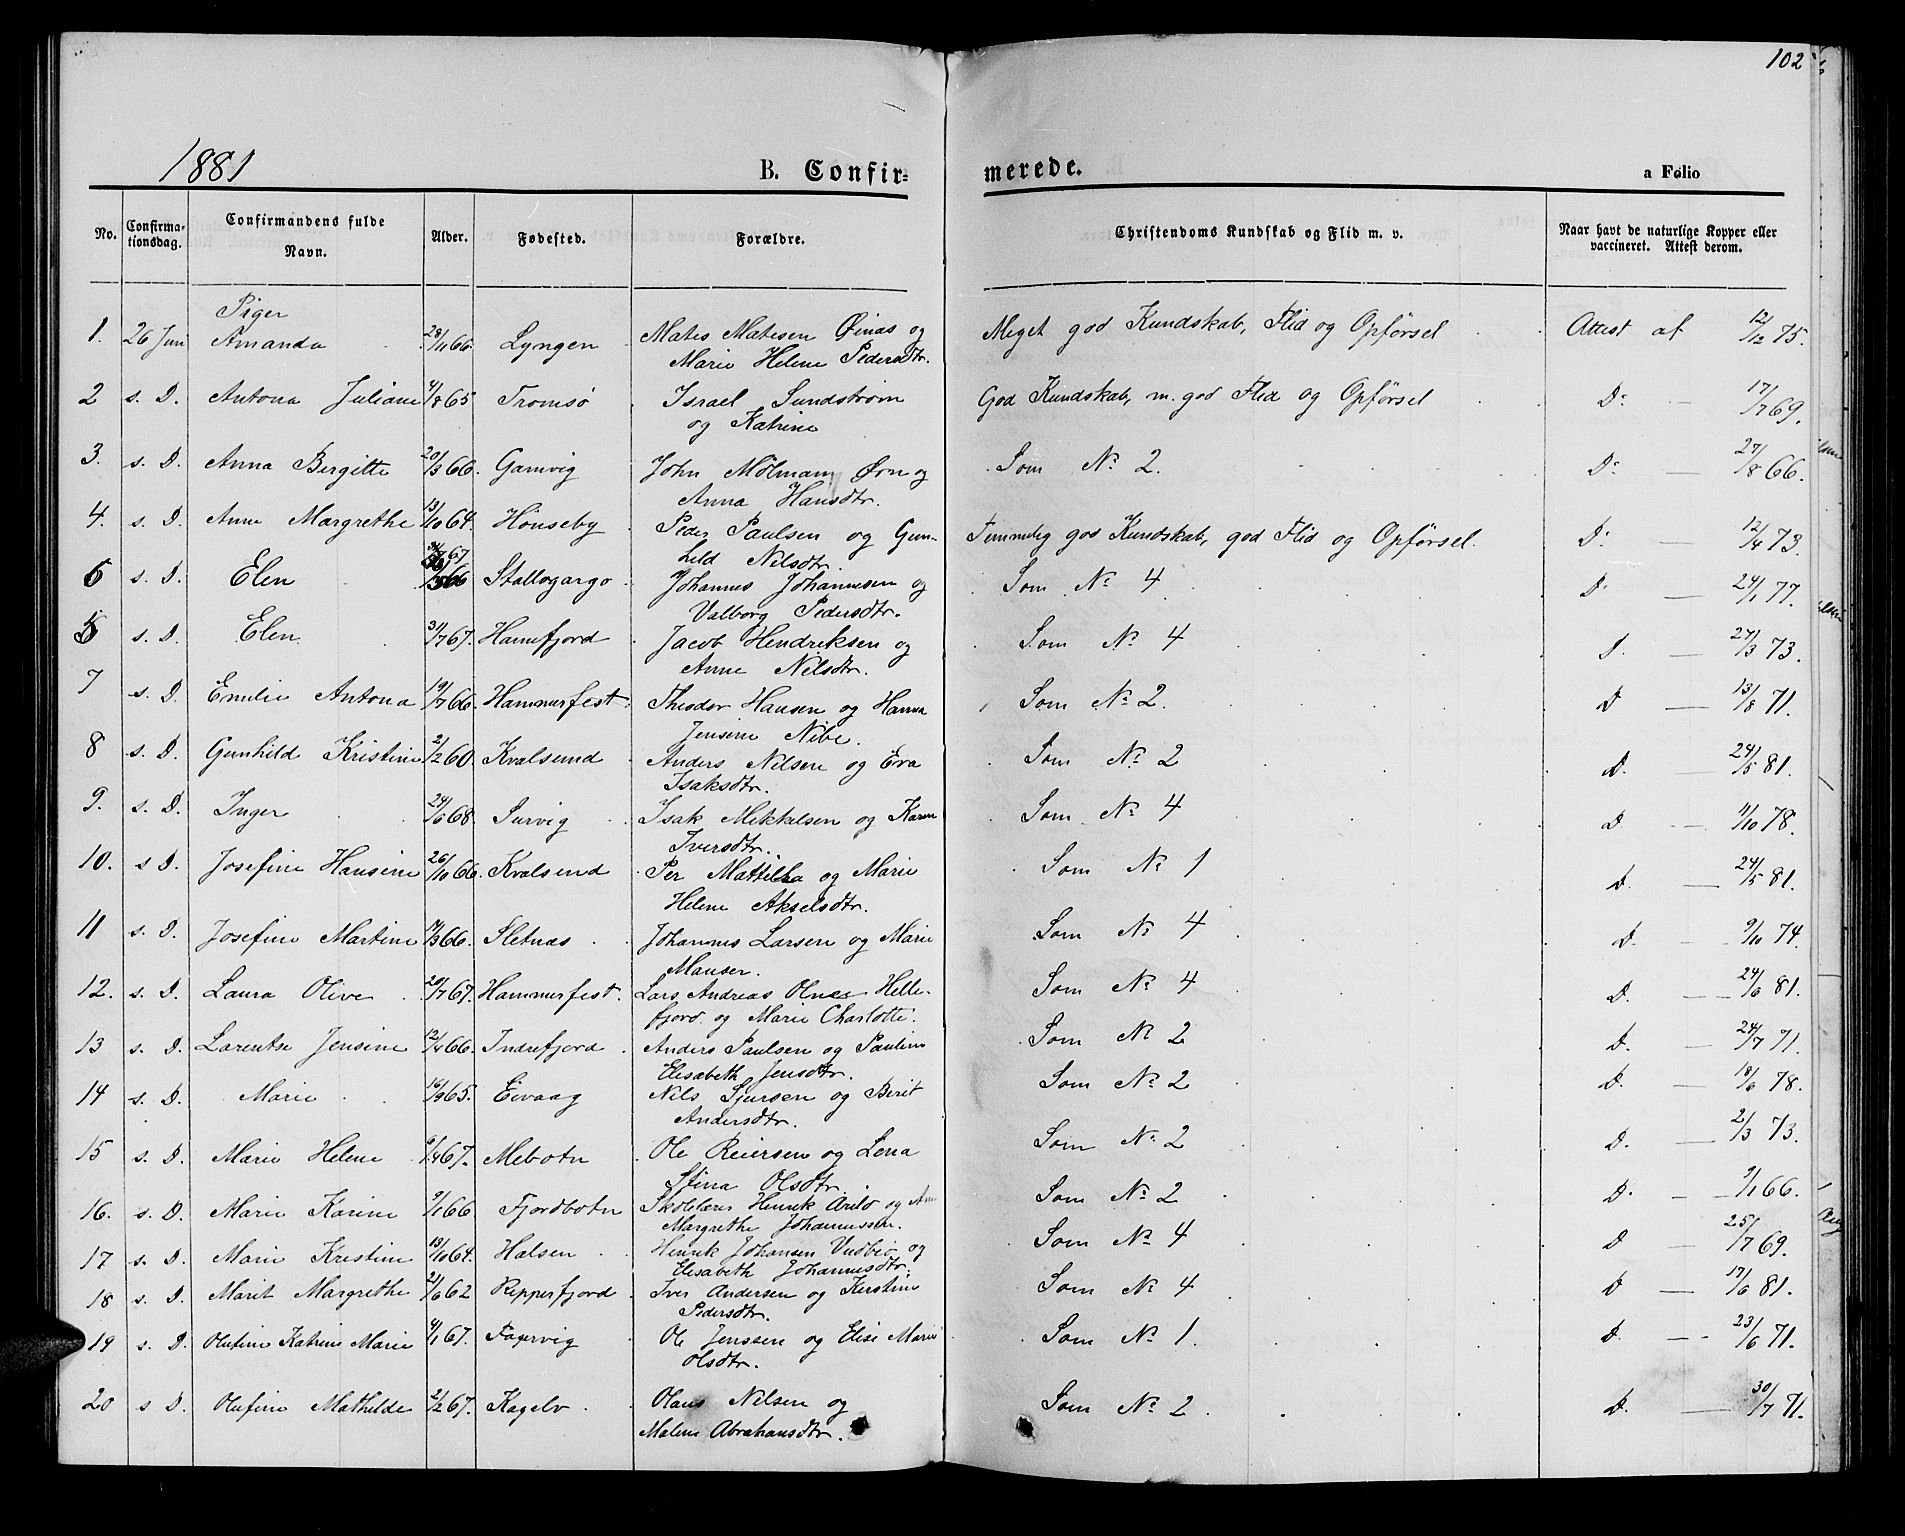 102
1881
B. Confirmerede.
a Folio
No. Confirmationsdag. Confirmandens fulde Navn. Alder. Fødested. Forældre. Christendoms Kundskab og Flid m. v. Naar havt de naturlige Kopper eller vaccineret. Attest derom.
Piger
1. 26 Juni Amanda 28/11 66. Lyngen Mates Matesen Øinas og Meget god Kundskab, Flid og Opførsel Attest af 12/12 75.
Marie Helene Pedersdtr.
2 s. D. Antona Juliane 4/8 65 Tromsø Israel Sundstrøm God Kundskab, m. god Flid og Opførsel Do 17/7 69.
og Katrine
3. s. D. Anna Bergitte 20/3 66. Gamvig John Mølmann Ørn og Som No 2. Do 27/8 66.
Anna Hansdtr.
4. s. D. Anne Margrethe 13/10 64. Hønseby Peder Paulsen og Gun- Temmelig god Kundskab, god Flid og Opførsel. Do 12/4 73.
hild Nilsdtr.
6 s. D. Elen Stallogargo Johannes Johannesen og Som No 4 D. 24/1 77.
Valborg Pedersdtr.
5 s. D. Elen 31/7 67. Hannefjord Jacob Hendriksen og Som No 4 D. 27/3 73.
Anne Nilsdtr.
7 s. D. Emelie Antona 19/7 66. Hammerfest. Theodor Hansen og Hanna Som No 2. D 13/8 71.
Jensine Nibe.
8 s. D. Gunhild Kristine 2/2 60. Kvalsund Anders Nilsen og Eva Som No 2 D. 24/5 81.
Isaksdtr.
9. s. D. Inger 24/6 68. Survig Isak Mikkelsen og Karen Som No 4 D. 11/10 78.
Iversdtr.
10. s D. Josefine Hansine 26/10 66. Kvalsund Per Mattilba og Marie Som No 1 D. 24/5 81.
Helene Akselsdtr.
11 s. D. Josefine Martine 7/3 66. Sletnæs Johannes Larsen og Marie Som No 4 D. 9/10 74.
Manser.
12. s. D. Laura Olive 20/7 67. Hammerfest. Lars Andreas Olnes Helle- Som No 4 D. 24/6 81.
fjord. og Marie Charlotte.
13 s. D. Larentse Jensine 12/4 66. Indrefjord Anders Paulsen og Pauline Som No 2 D. 24/7 71.
Elisabeth Jensdtr.
14 s. D. Marie 16/9 65. Eivaag Nils Sjursen og Berit Som No 2 D. 18/6 78.
Andersdtr.
15 s. D. Marie Helene 6/4 67. Mebotn Ole Reiersen og Lena Som No 2 D. 2/3 73.
Stina Olsdtr.
16. s. D. Marie Karine 9/1 66 Fjordbotn Skolelærer Henrik Arild og Ane Som No 2 D. 9/1 66.
Margrethe Johannessen.
17 s. D. Marie Kristine 13/10 64. Halsen Henrik Johansen Vudbio og Som No 4 D 25/7 69.
Elisabeth Johannesdtr.
18 s. D. Marit Margrethe 21/6 62 Repperfjord Iver Andersen og Kerstine Som No 4 D 17/6 81.
Pedersdtr.
19 s. D. Olufine Katrine Marie 9/1 67. Fagervig Ole Jenssen og Elise Marie Som No 1. D. 23/6 71.
Olsdtr.
20 s D. Olufine Mathilde 2/2 67. Kagelv Olaus Nilsen og Som No 2 D. 30/7 71.
Malene Abrahamsdtr.